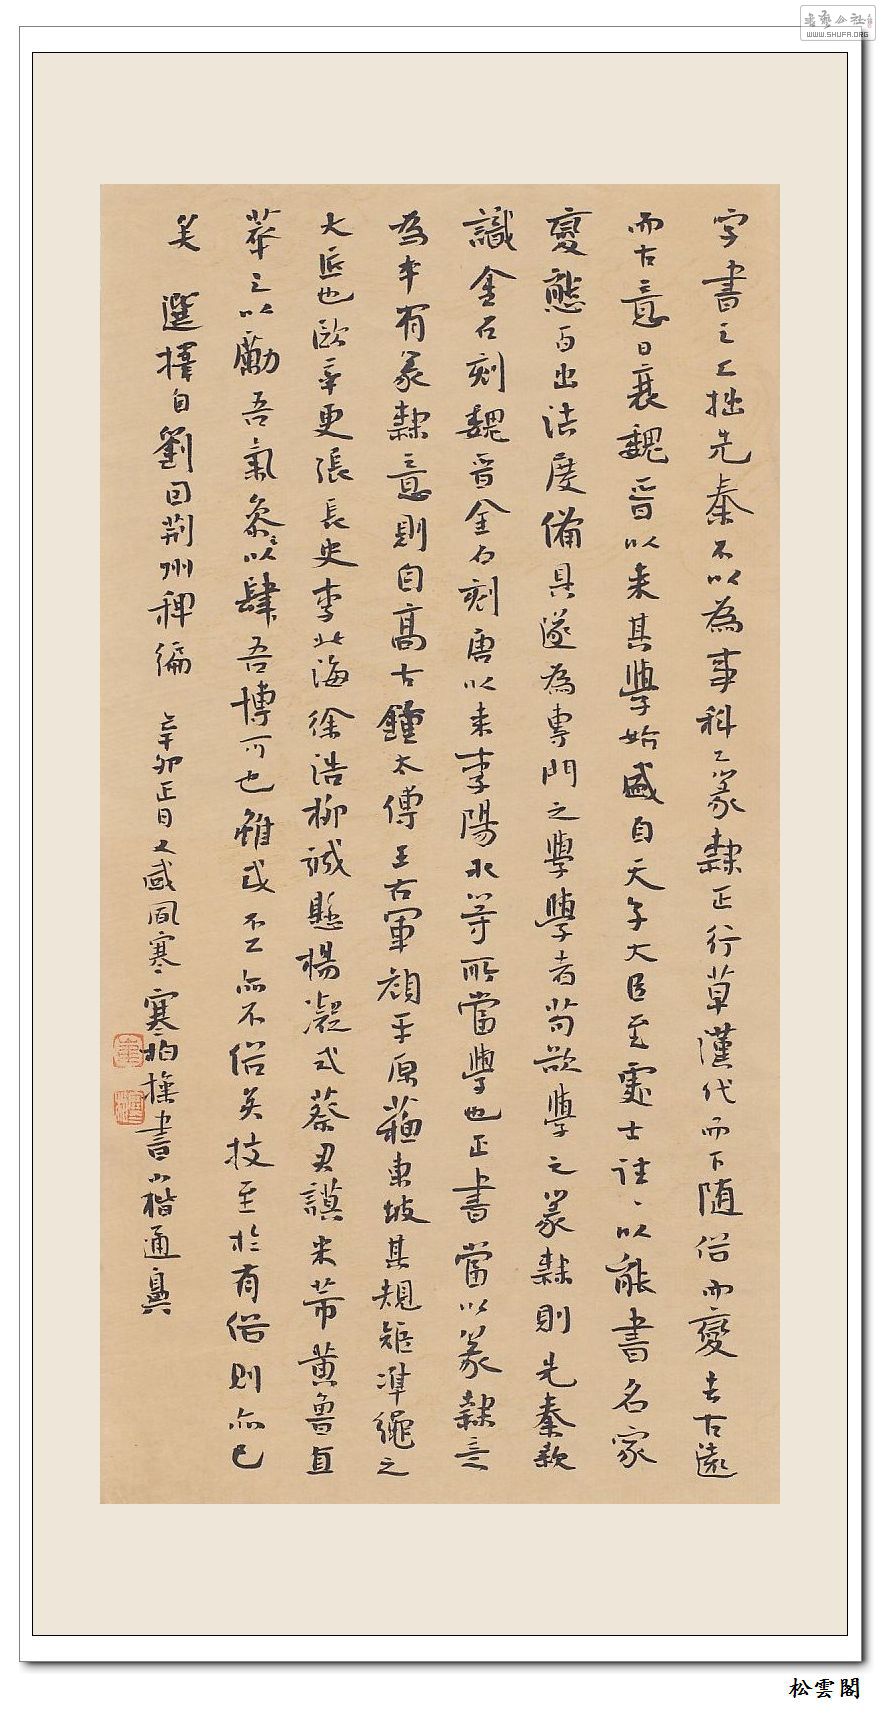 字書之工拙先秦不以為事科工篆隸正行草漢代而下随俗而變去古遠
而古意日衰魏晉以来其學始盛自天子大臣至處士往、以能書名家
變態百出法度備具遂為專門之學學者苟欲學之篆隸則先秦款
識金石刻魏晉金石刻唐以来李陽冰等所當學也正書當以篆隸意
為本有篆隸意則自高古鍾太傅王右軍顏平原蘇東坡其規矩準繩之
大匠也歐率更張長史李北海徐浩柳誠懸楊凝式蔡君謨米芾黄魯直
萃之以勵吾氣參之以肆吾博可也雖或不工亦不俗矣技至於有俗則亦已
矣 選擇自劉因荆州稗編 辛卯正月又感風寒寒柏操書小楷通鼻
書藝公社
WWW.SHUFA.ORG
松雲閣